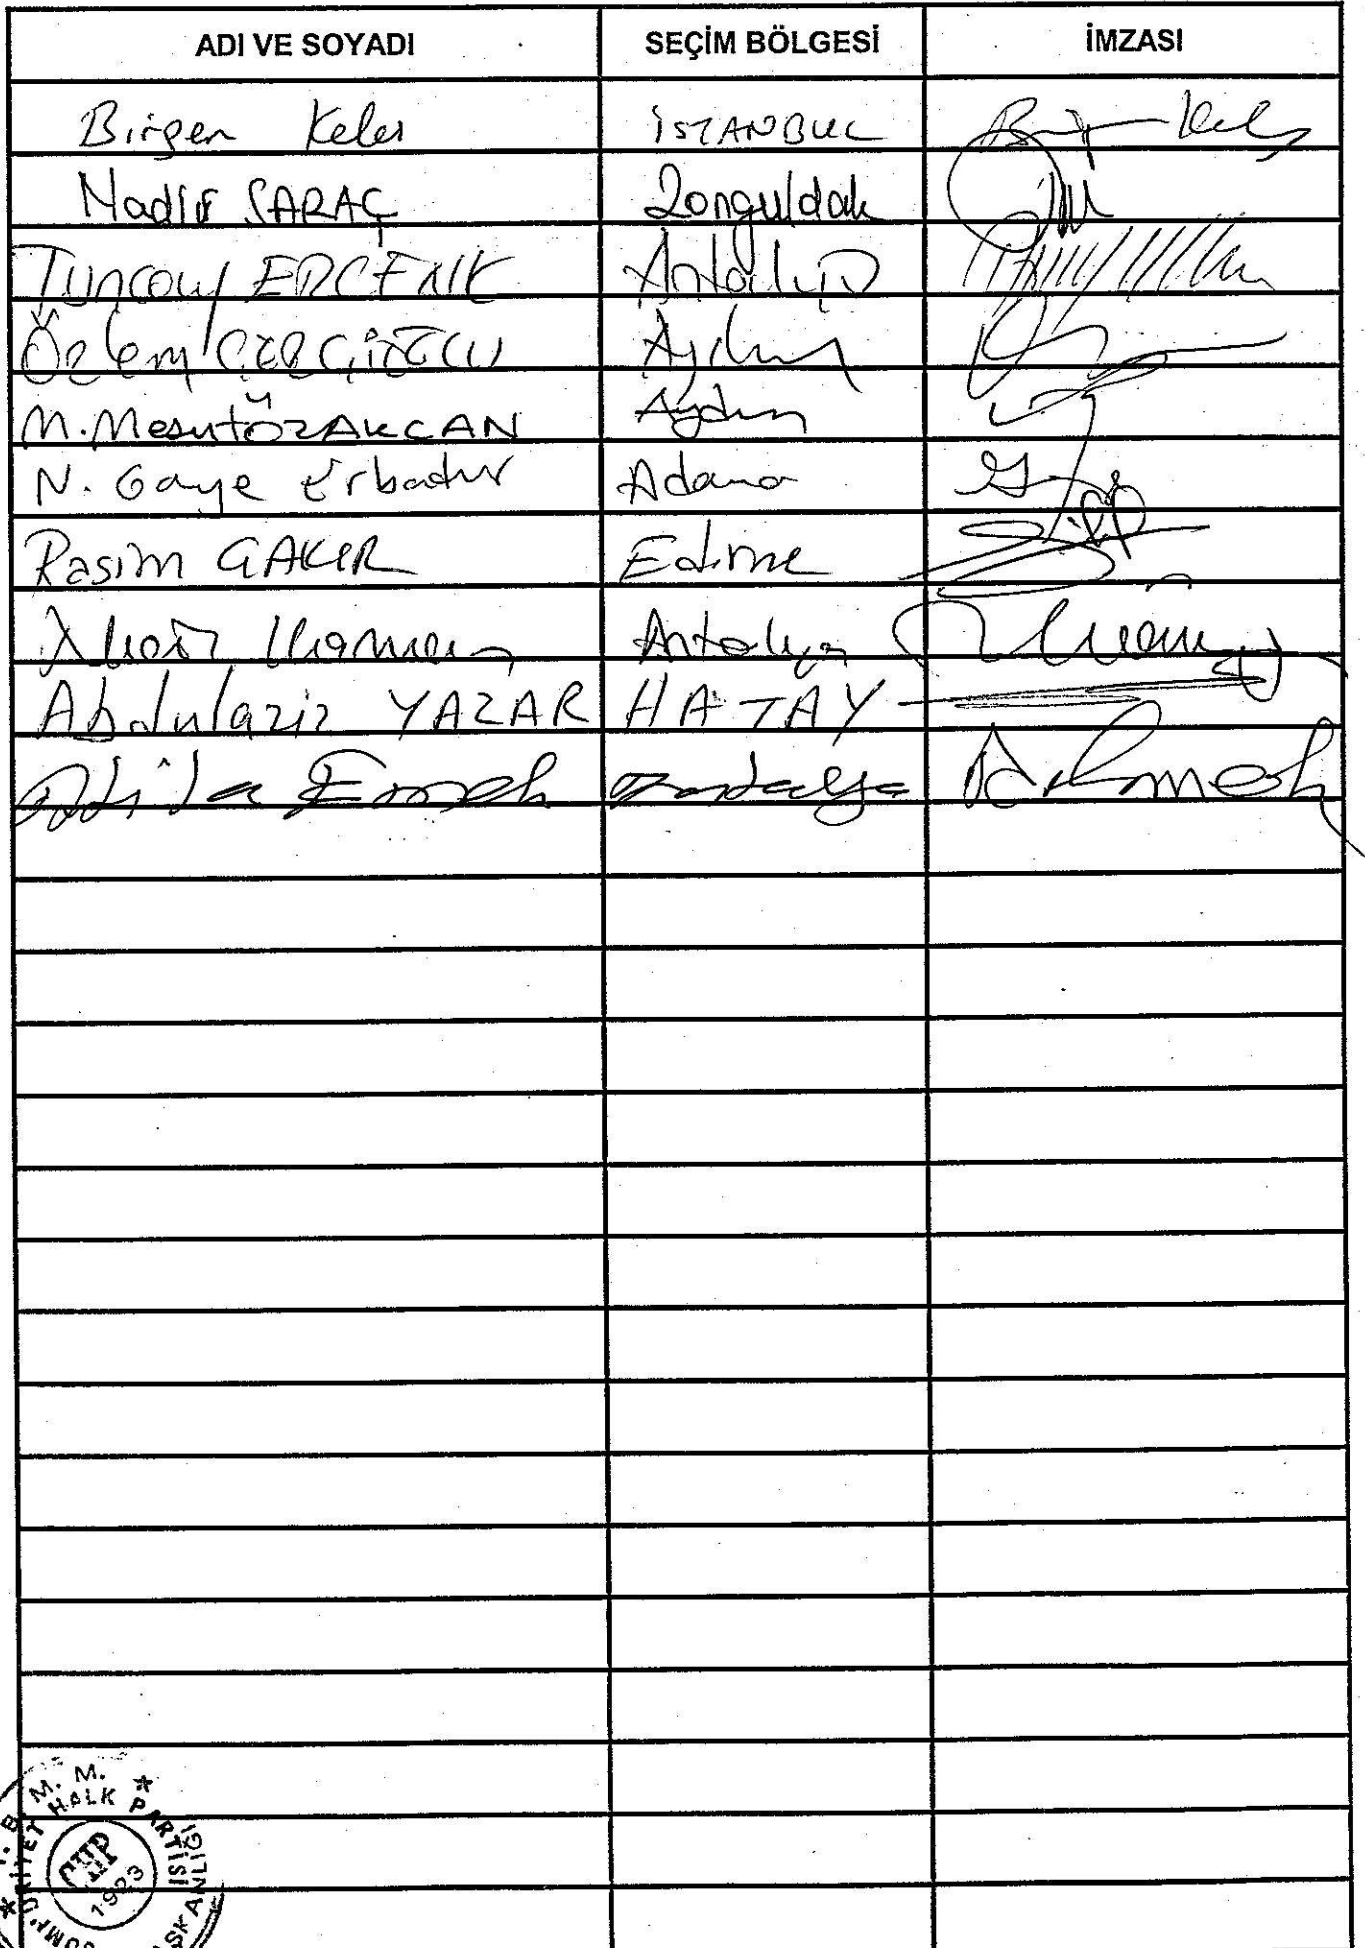 ADI VE SOYADI SEÇİM BÖLGESİ İMZASI
Birgen Keleş İSTANBUL
Nadir SARAÇ Zonguldak
Tuncay ERCENK Antalya
Özlem ÇERÇİOĞLU Aydın
M. Mesut ÖZAKCAN Aydın
N. Gaye Erbatur Adana
Rasim ÇAKIR Edirne
Antalya
Abdulaziz YAZAR HATAY
Atila Emek Antalya
T. B. M. M.
CUMHURİYET HALK PARTİSİ
CHP
1923